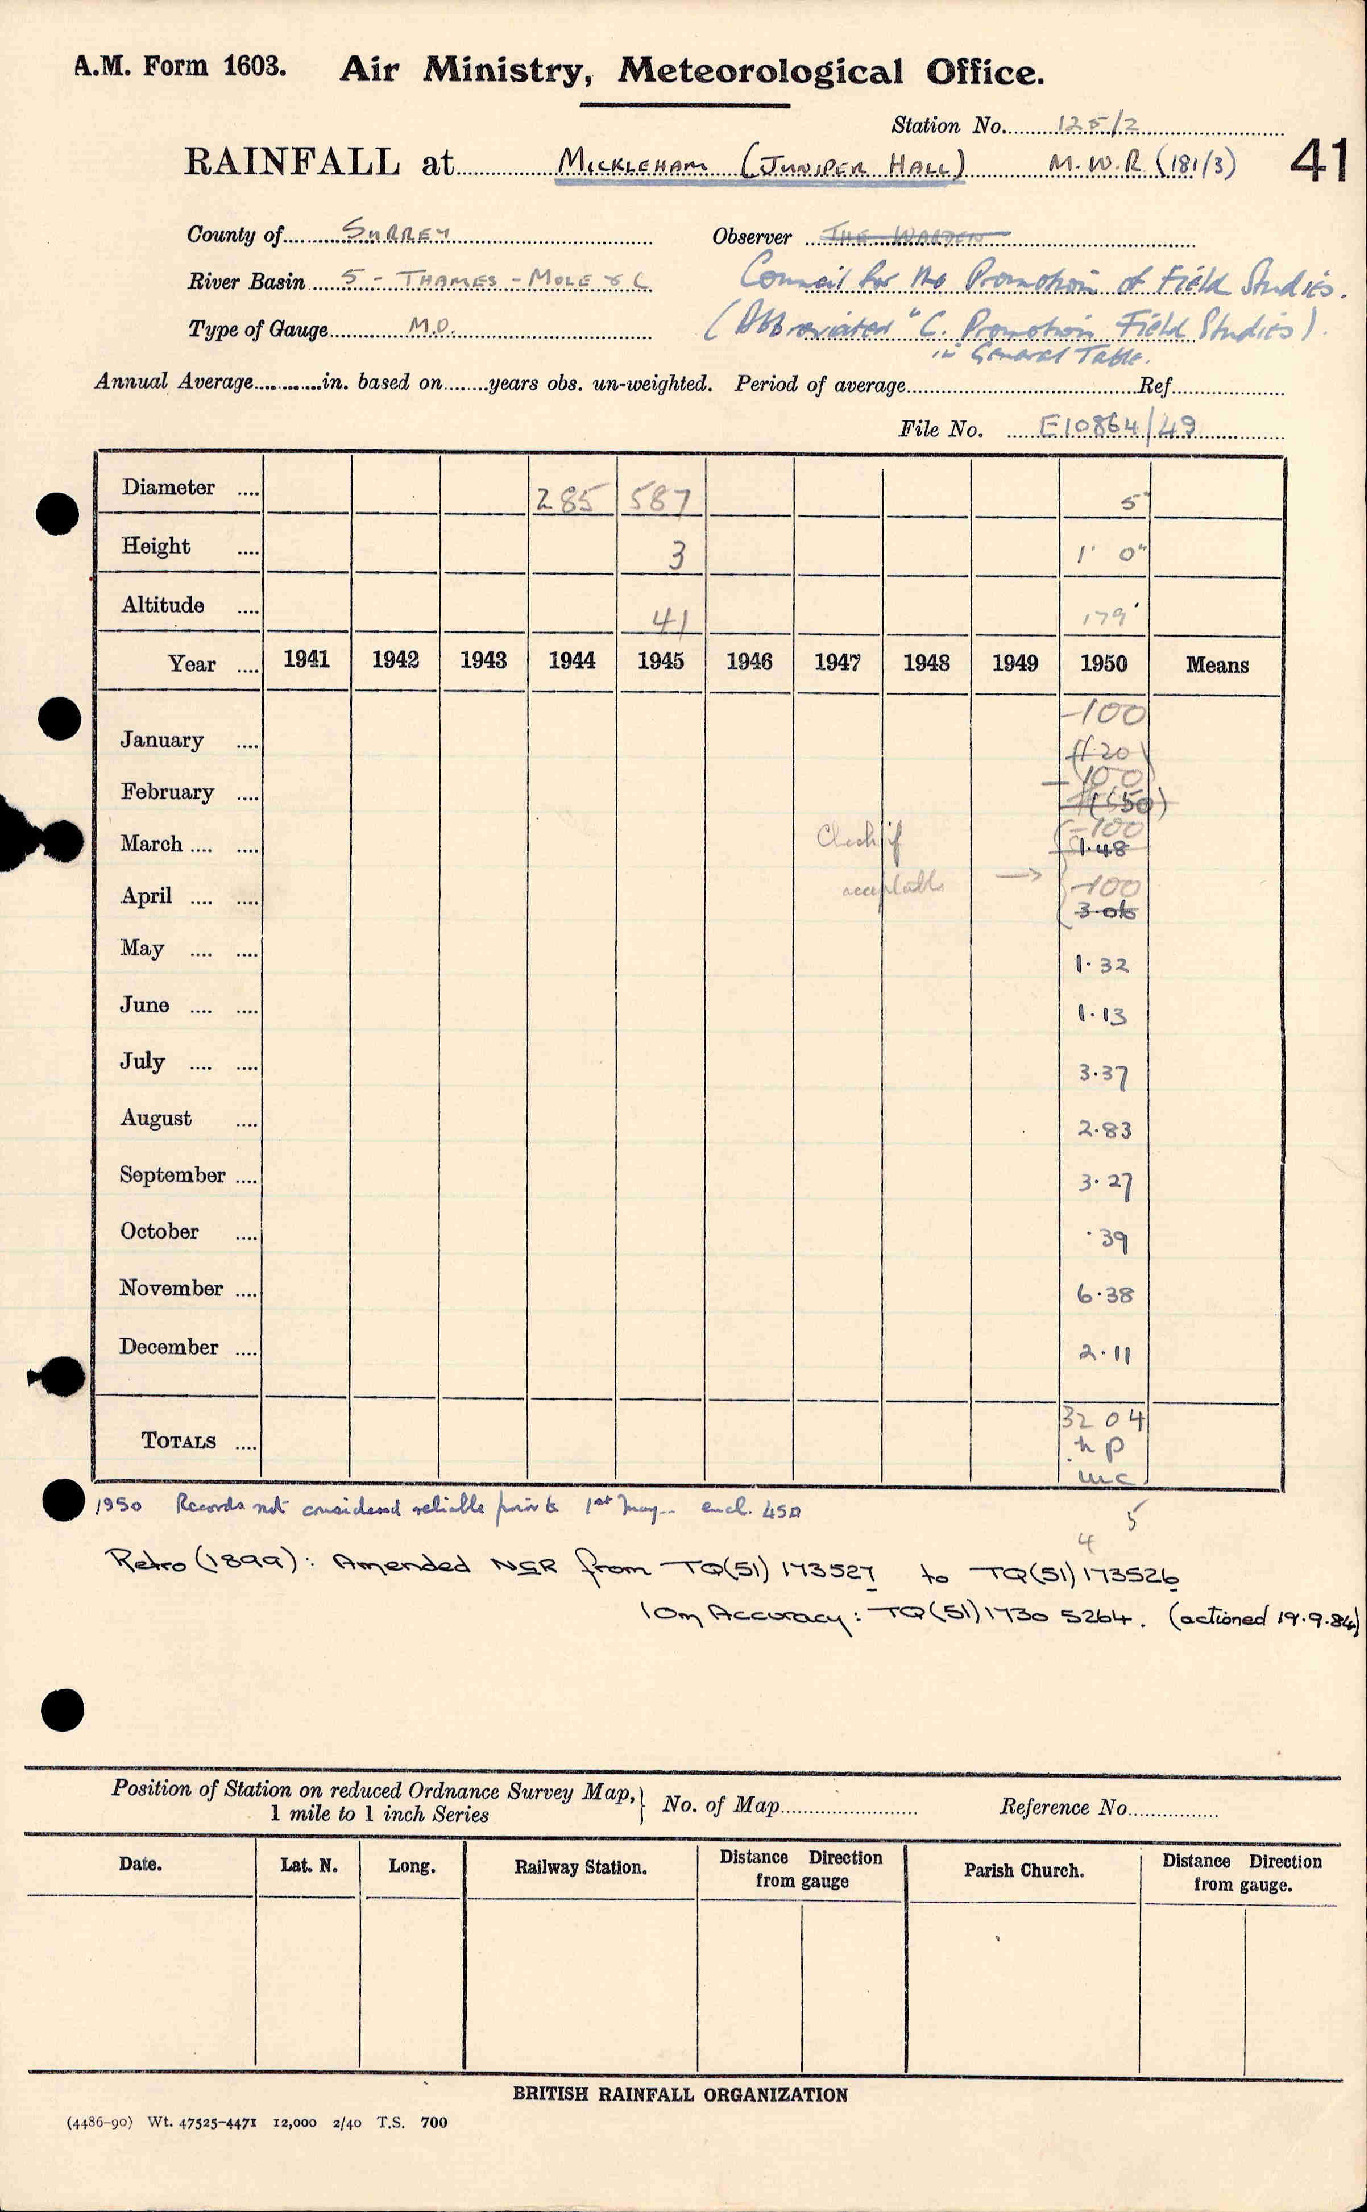 A.M. Form 1603. Air Ministry, Meteorological Office.
Station No. 125/2
RAINFALL at MICKLEHAM (JUNIPER HALL) M.W.R (181/3) 41
County of SURREY Observer THE WARDEN
River Basin 5 - THAMES - MOLE & C Council for the Promotion of Field Studies.
Type of Gauge M.O. (Abbreviated "C. Promotion Field Studies).
in General Table.
Annual Average in. based on years obs. un-weighted. Period of average Ref
File No. E10864/49
Diameter 285 587 5"
Height 3 1' 0"
Altitude 41 179'
Year 1941 1942 1943 1944 1945 1946 1947 1948 1949 1950 Means
-100
January (1.20)
-100
February (1.50)
-100
March Check if 1.48
acceptable → -100
April 3.06
May 1.32
June 1.13
July 3.37
August 2.83
September 3.27
October .39
November 6.38
December 2.11
32 04
TOTALS n p
inc
1950 Records not considered reliable prior to 1st May encl. 45
5
4
Retro (1899): Amended NGR from TQ(51) 173527 to TQ(51) 173526
10m Accuracy: TQ(51) 1730 5264. (actioned 19.9.84)
Position of Station on reduced Ordnance Survey Map, 1 mile to 1 inch Series } No. of Map Reference No.
Date. Lat. N. Long. Railway Station. Distance Direction from gauge Parish Church. Distance Direction from gauge.
BRITISH RAINFALL ORGANIZATION
(4486-90) Wt. 47525-4471 12,000 2/40 T.S. 700